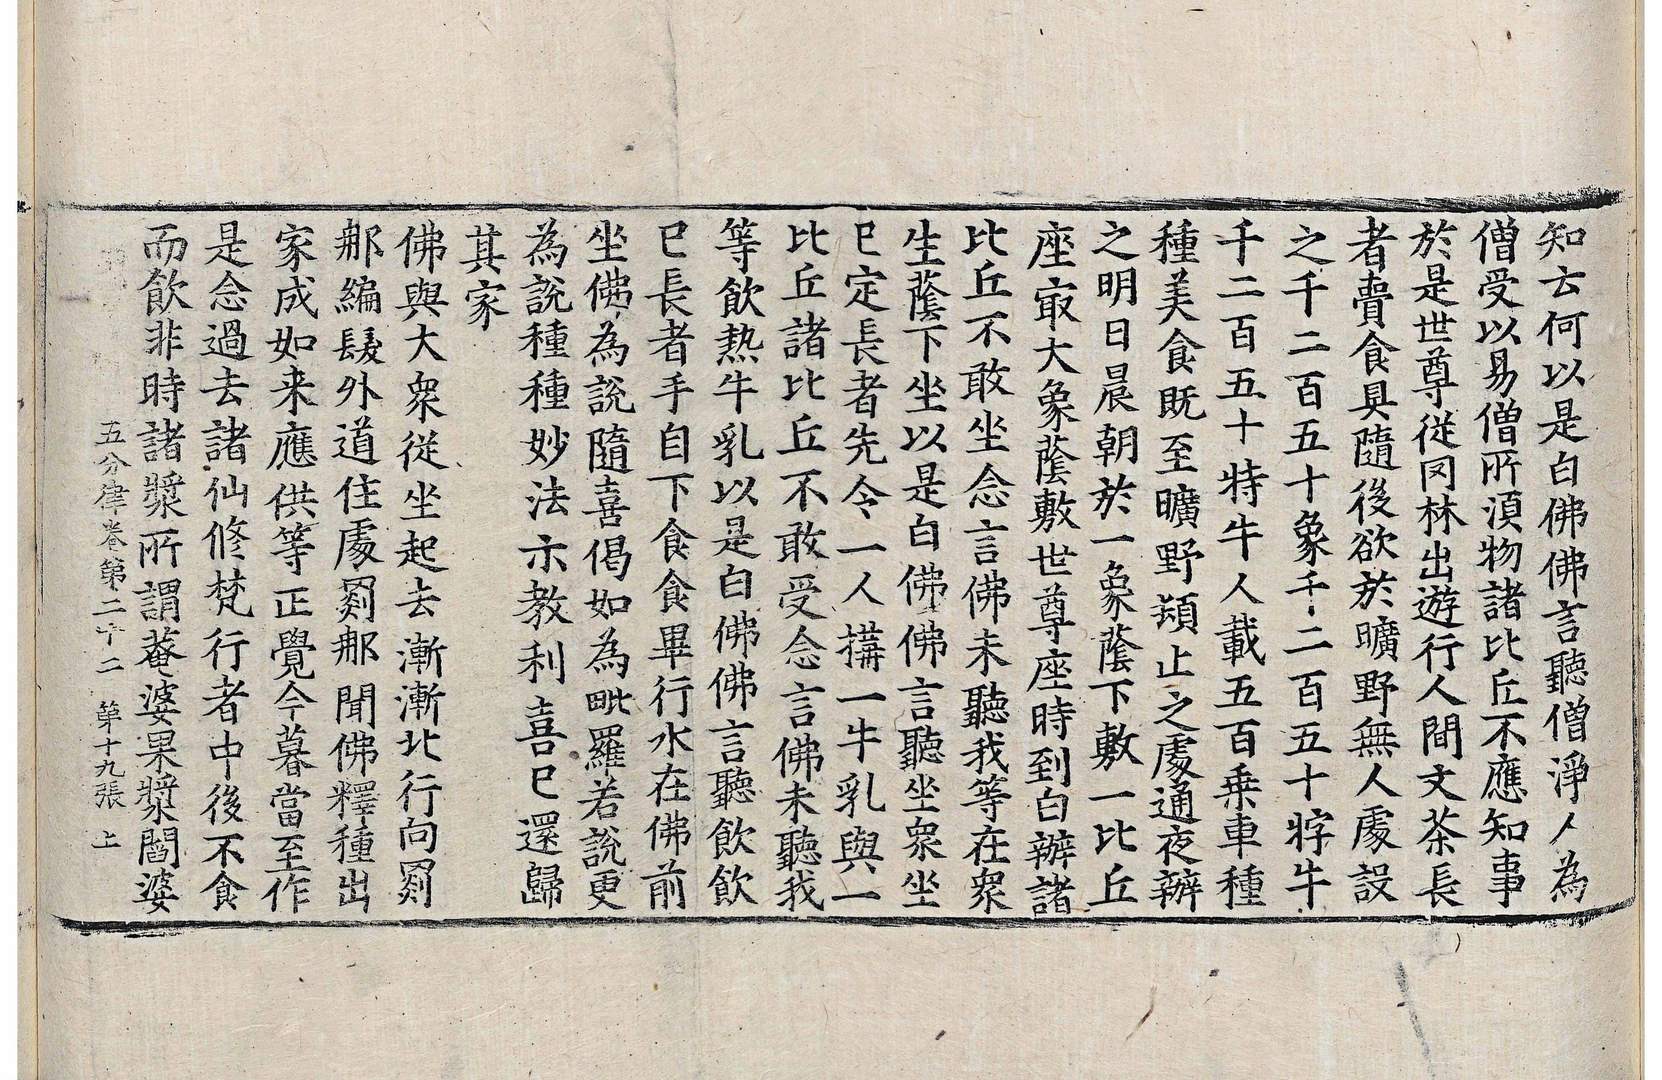 知云何以是白佛佛言聽僧淨人為
僧受以易僧所湏物諸比丘不應知事
於是世尊従罔林出遊行人間文茶長
者賷食具隨後欲於曠野無人處設
之千二百五十象千二百五十牸牛
千二百五十特牛人載五百乗車種
種美食既至曠野頓止之處通夜辦
之明日晨朝於一象蔭下敷一比丘
座㝡大象蔭敷世尊座時到白辦諸
比丘不敢坐念言佛未聽我等在衆
生蔭下坐以是白佛佛言聽坐衆坐
已定長者先令一人搆一牛乳與一
比丘諸比丘不敢受念言佛未聽我
等飲熱牛乳以是白佛佛言聽飲飲
已長者手自下食食畢行水在佛前
坐佛為說隨喜偈如為毗羅若說更
為說種種妙法示教利喜已還歸
其家
佛與大衆從坐起去漸漸北行向罽
那編髮外道住處罽那聞佛釋種出
家成如来應供等正覺今暮當至作
是念過去諸仙修梵行者中後不食
而飲非時諸漿所謂菴婆果漿閻婆
五分律卷第二十二 第十九張 上